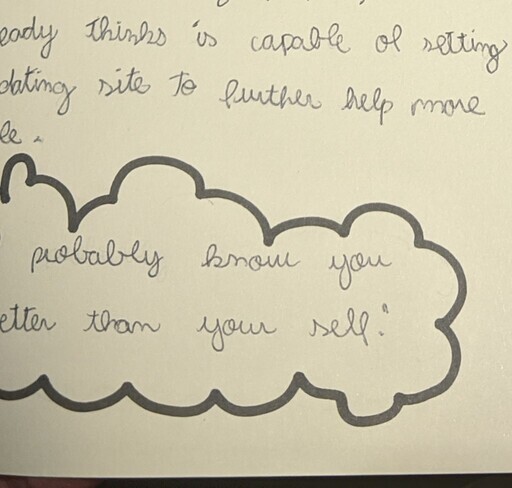 eady thinks is capable of setting
dating site to further help more
le.
probably know you
etter than your self."